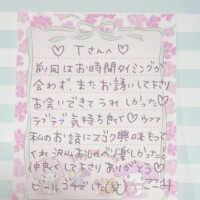 ♡Tさんへ♡
前回はお時間タイミングが
合わず、またお誘いして下さり
お会いできてうれしかった♡
ラブラブ気持ち良くて♡ウフフ
私のお話にスゴク興味もって
くれ沢山おしゃべり楽しかった。
仲良くして下さりありがとう♡
ビールごちそう